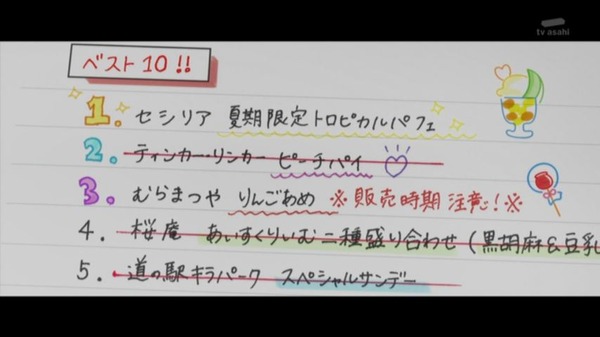 tv asahi
ベスト10!!
1. セシリア 夏期限定トロピカルパフェ
2. ティンカー・リンカー ピーチパイ
3. むらまつや りんごあめ ※販売時期注意!※
4. 桜庵 あいすくりいむ二種盛り合わせ(黒胡麻&豆乳
5. 道の駅キラパーク スペシャルサンデー